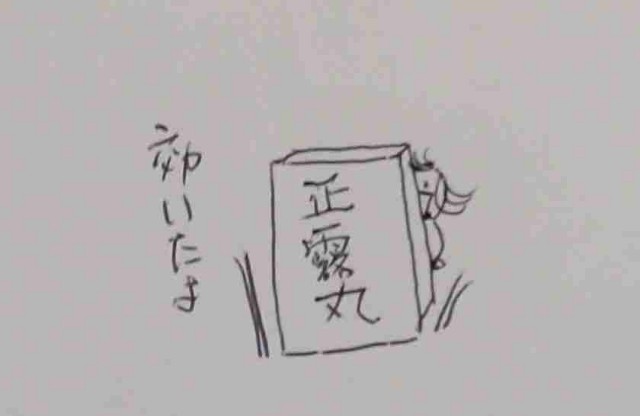 効いたよ
正露丸